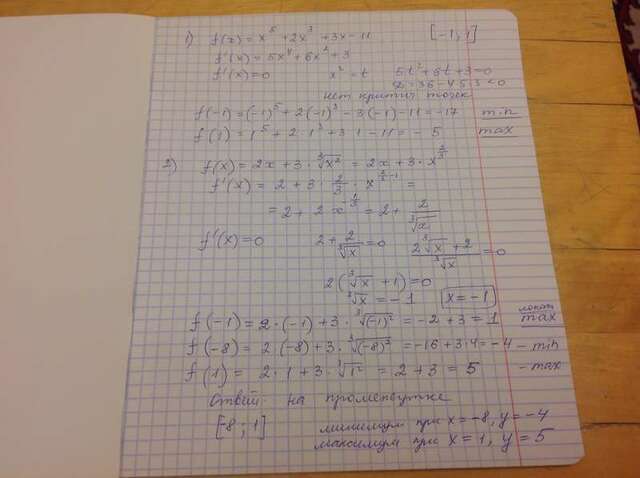 1) f(x) = x⁵ + 2x³ + 3x - 11 [-1; 1]
f'(x) = 5x⁴ + 6x² + 3
f'(x) = 0 x² = t 5t² + 6t + 3 = 0
D = 36 - 4·5·3 < 0
нет критич точек
f(-1) = (-1)⁵ + 2(-1)³ - 3(-1) - 11 = -17 min
f(1) = 1⁵ + 2·1³ + 3·1 - 11 = -5 max
2) f(x) = 2x + 3·∛x² = 2x + 3·x^(2/3)
f'(x) = 2 + 3·2/3·x^(2/3-1) =
= 2 + 2x^(-1/3) = 2 + 2/∛x
f'(x) = 0 2 + 2/∛x = 0 (2∛x + 2)/∛x = 0
2(∛x + 1) = 0
∛x = -1 x = -1
f(-1) = 2·(-1) + 3·∛(-1)² = -2 + 3 = 1 локал max
f(-8) = 2(-8) + 3·∛(-8)² = -16 + 3·4 = -4 - min
f(1) = 2·1 + 3·∛1² = 2 + 3 = 5 - max
Ответ: на промежутке
[-8; 1] минимум при x = -8, y = -4
максимум при x = 1, y = 5